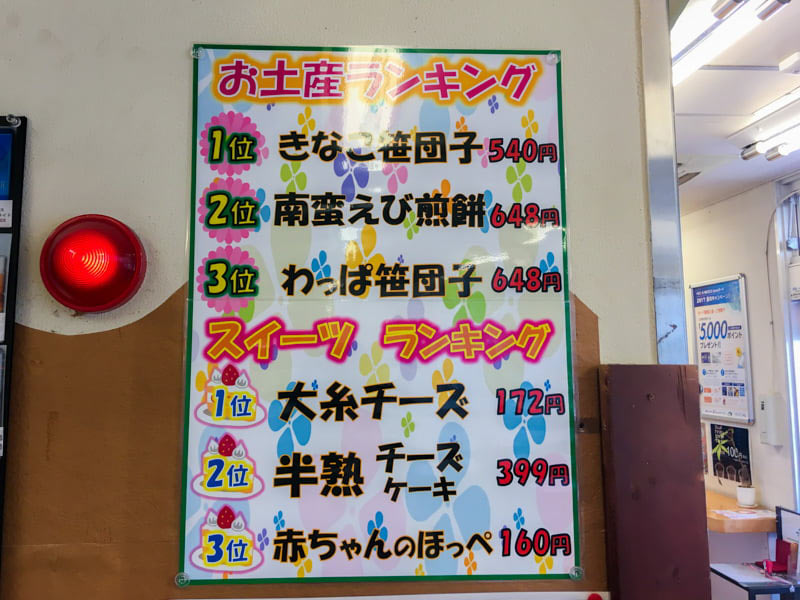 お土産ランキング
1位 きなこ笹団子 540円
2位 南蛮えび煎餅 648円
3位 わっぱ笹団子 648円
スイーツ ランキング
1位 大糸チーズ 172円
2位 半熟 チーズケーキ 399円
3位 赤ちゃんのほっぺ 160円
5,000ポイント
プレゼント!!